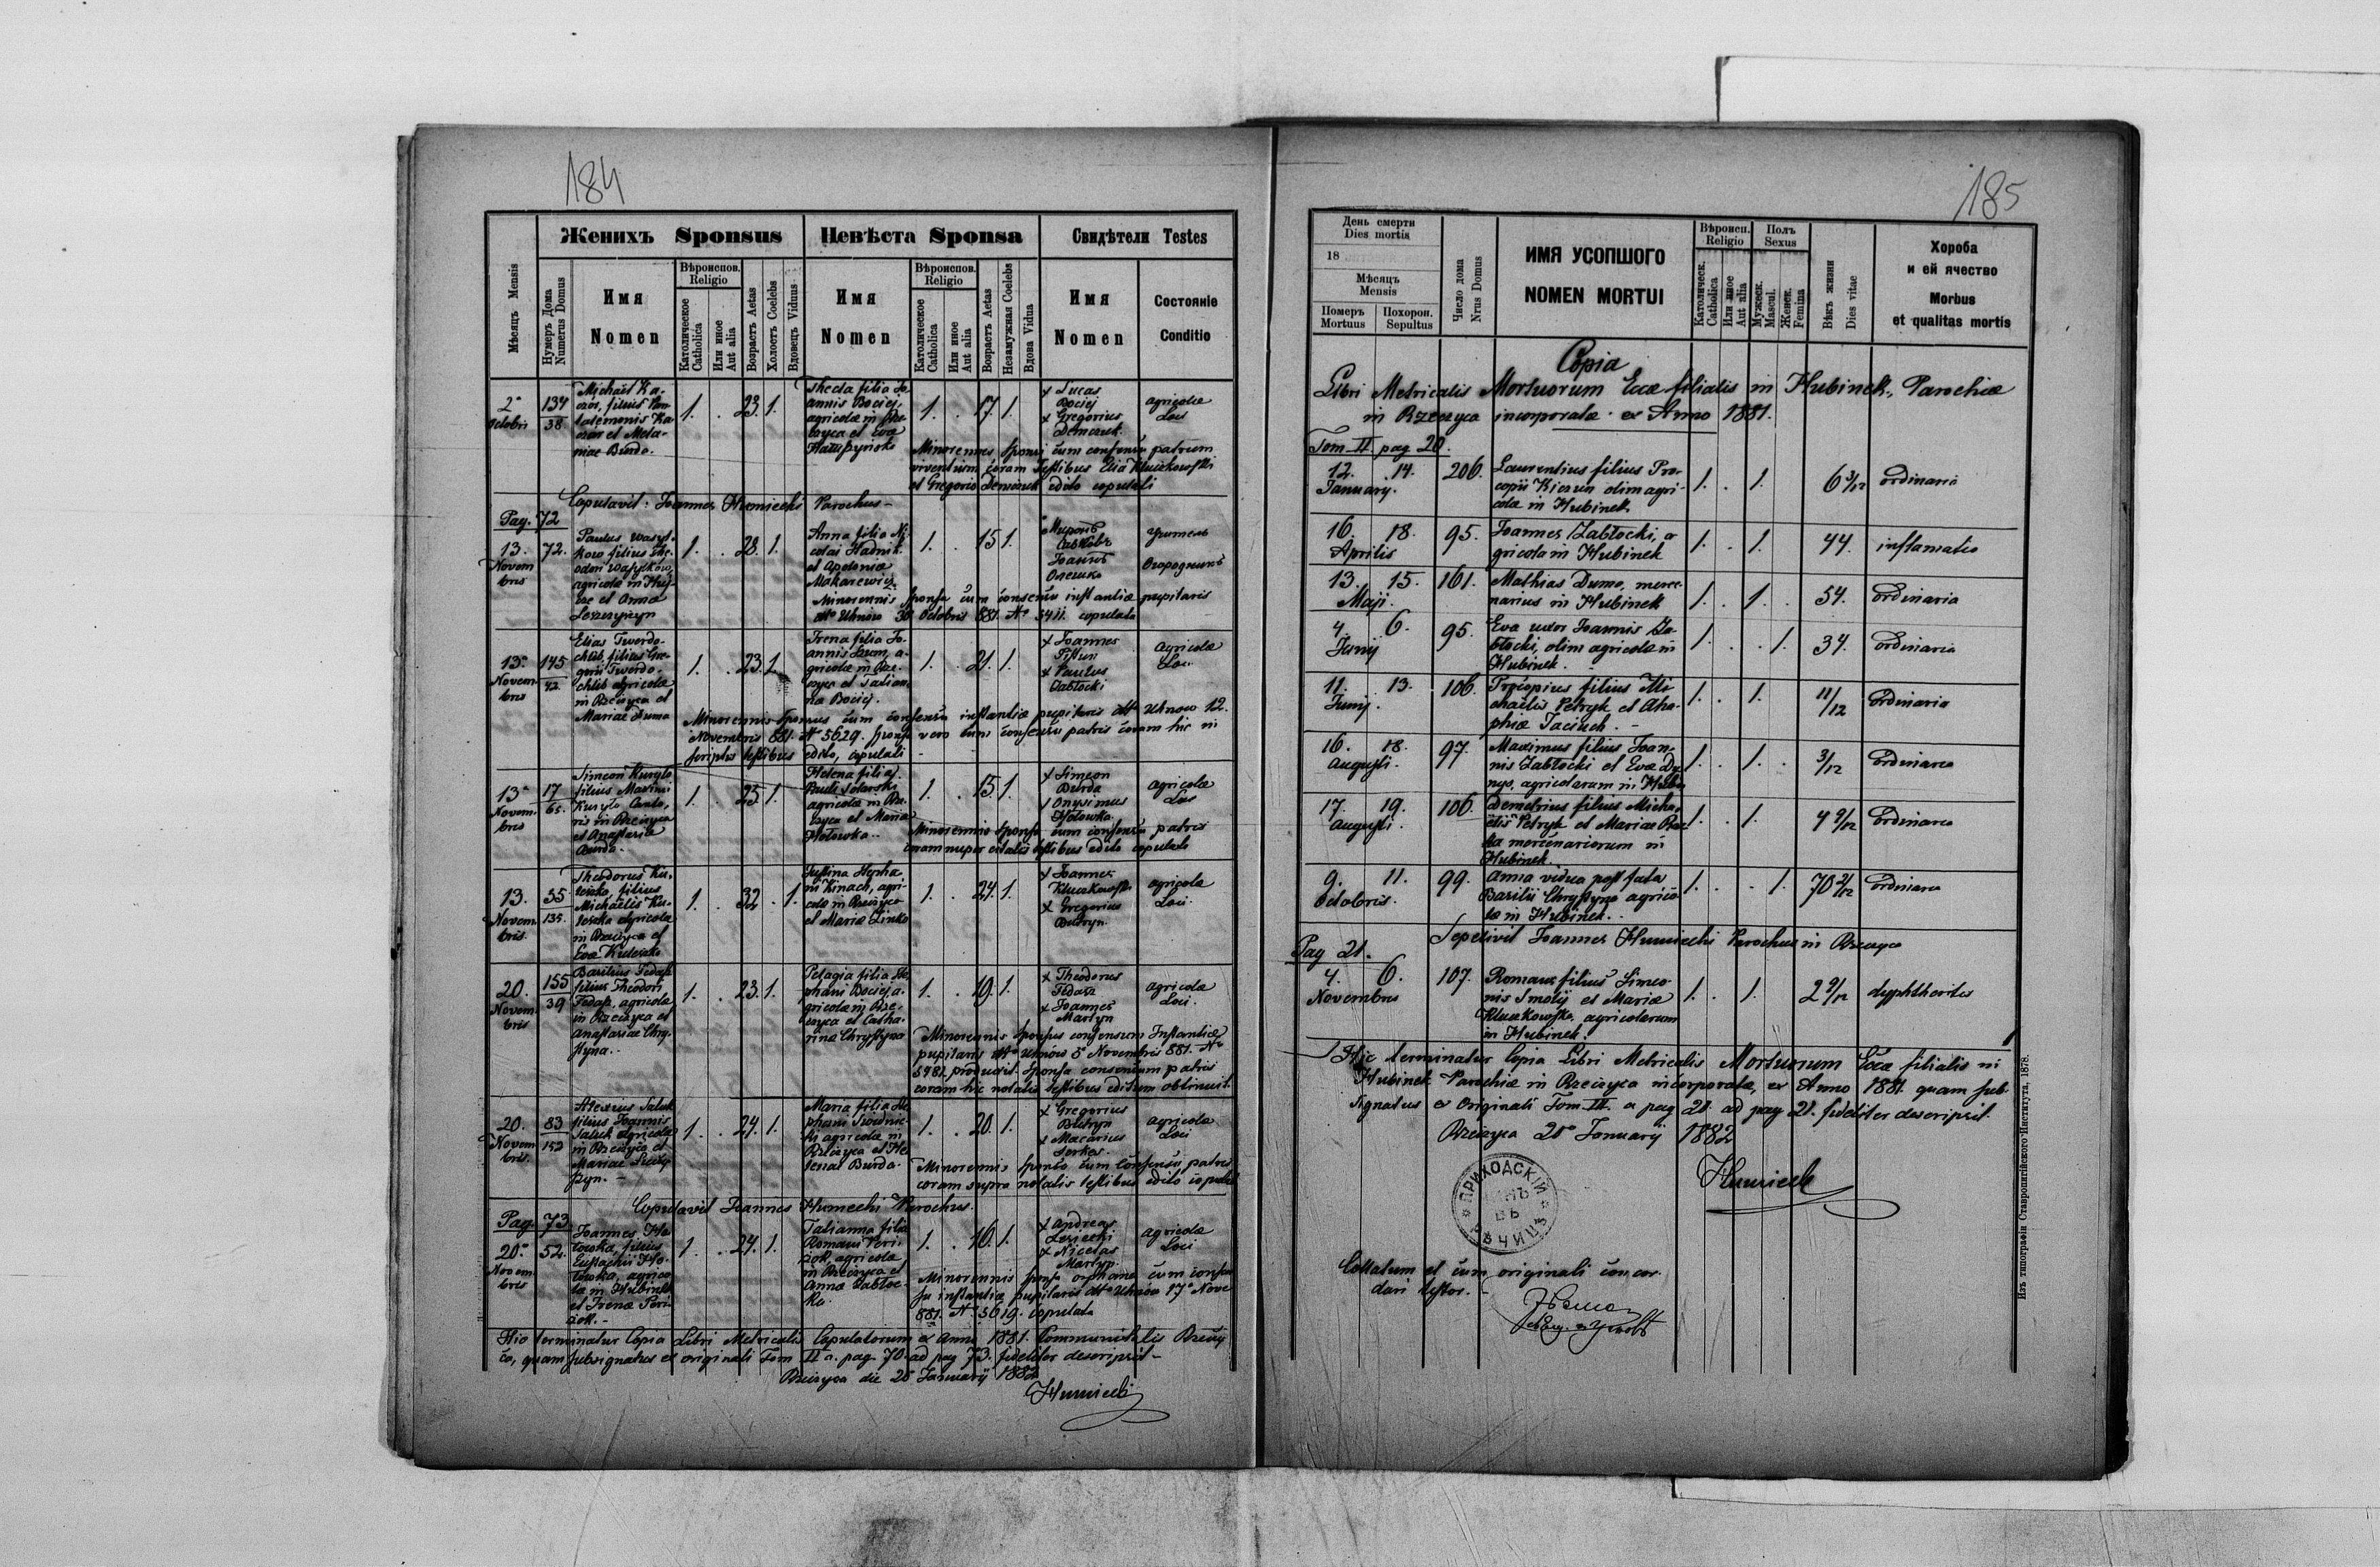 184
Женихъ Sponsus
Невѣста Sponsa
Свидѣтели Testes
Мѣсяцъ Mensis
Нумеръ Дома
Numerus Domus
Имя
Nomen
Вѣроиспов.
Religio
Католическое
Catholica
Или иное
Aut alia
Возрастъ Aetas
Холостъ Coelebs
Вдовецъ Viduus
Имя
Nomen
Вѣроиспов.
Religio
Католическое
Catholica
Или иное
Aut alia
Возрастъ Aetas
Незамужная Coelebs
Вдова Vidua
Имя
Nomen
Состояніе
Conditio
2
Octobris
134
38
Michael Ka-
filius Pan-
et Mela-
niae Burda.
1. . 23. 1.
Thecla filia Jo-
annis Bociej,
agricolae in Rze-
czyca et Eva
1. . 17. 1.
+ Lucas
Bociej
+ Gregorius
Demczuk.
agricolae
Loci
Minorennes sponsi cum consensu patrum
viventium coram Testibus Elia Kluczkowski
et Gregorio Demczuk edito copulati
Copulavit: Joannes Humiecki Parochus
Pag. 72
13.
Novem
bris
72.
Paulus Wasyl-
kow filius The-
odori Wasylkow,
agricolae in
et Anna
1. . 28. 1.
Anna filia Ni-
colai Hadnik
et Apolonia
Makarewicz
1. . 15. 1.
Миронъ
Іоаннъ
учитель
Огородникъ
Minorennis sponsa cum consensu instantiae pupilaris
dtto Uhnow 30 Octobris 881. No 5411. copulata
13.
Novem-
bris
145
42.
Elias Twerdo-
chlib, filius Gre-
gorii Twerdo-
chlib agricolae
in Rzeczyca et
Mariae Duma
1. . 23. 1.
Irena filia Jo-
annis a-
gricolae in Rze-
czyca et Tatian-
na Bociej.
1. . 21. 1.
+ Joannes
+ Paulus
Zabłocki
agricolae
Loci
Minorennis Sponsus cum consensu instantiae pupilaris dtto Uhnow 12.
Novembris 881. No 5629. sponsa vero cum consensu patris coram hic in
scriptis testibus edito, copulati
13
Novem-
bris
17
65.
Simeon Kuryło
filius Maximi
Kuryło
in Rzeczyca
et Anastasia
Burda.
1. . 25. 1.
Helena filia
Pauli
agricolae in Rze-
czyca et Maria
Hołowka.
1. . 15. 1.
+ Simeon
Burda
+ Onysimus
Hołowka
agricolae
Loci
Minorennis Sponsa cum consensu patris
coram nuper citatis testibus edito copulata
13.
Novem-
bris.
35
135.
Theodorus Ku-
filius
Michaelis Ku-
agricola
in Rzeczyca et
Eva
1. . 32. . 1.
Justina Stepha-
ni Kinach, agri-
cola in Rzeczyca
et Maria Linko
1. . 24. 1.
+ Joannes
Kluczkowski.
+ Gregorius
agricolae
Loci.
20.
Novem-
bris
155
39
Basilius Fedasz
filius Theodori
Fedasz, agricola
in Rzeczyca et
Anastasiae Chry-
styna.
1. . 23. 1.
Pelagia filia Ste-
phani Bociej a-
gricolae in Rze-
czyca et Catha-
rina Chrystyna
1. . 19. 1.
+ Theodorus
Fedasz
+ Joannes
Martyn
agricolae
Loci.
Minorennis Sponsus consensum Instantiae
pupilaris dtto Uhnów 5 Novembris 881. No
produxit. Sponsa consensum patris
coram hic notatis testibus editum obtinuit.
20.
Novem
bris.
83
152
Alexius
filius Joannis
agricolae
in Rzeczyca et
Mariae
1. . 24. 1.
Maria filia Ste-
phani
agricolae in
Rzeczyca et He-
lenae Burda.
1. . 20. 1.
+ Gregorius
+ Macarius
agricolae
Loci
Minorennis Sponsa cum Consensu patris
coram supra notatis testibus edito copulata
Copulavit Joannes Humiecki Parochus.
Pag. 73
20.
Novem
bris
52.
Joannes Ho-
łowka, filius
Eustachii Ho-
łowka, agrico-
lae in Hubinek
et Irenae
1. . 24. 1.
Tatianna filia
Romani
agricola
in Rzeczyca et
Anna Zabłoc-
ka.
1. . 16. 1.
+ Andreas
+ Nicetas
Martyn.
agricolae
Loci
Minorennis sponsa orphana cum consen
su instantiae pupilaris dtto Uhnów 17 Nove
881. No 5619. copulata
Hic terminatur Copia Libri Metricalis Copulatorum ex Anno 1881. Communitatis Rzeczy
ca, quam subsignatus ex originali Tom II a. pag. 70. ad pag 73. fideliter descripsit
Rzeczyca die 20 Januarij 1882
Humiecki
185
День смерти
Dies mortis
18
Мѣсяцъ
Mensis
Померъ
Mortuus
Похорон.
Sepultus
Число дома
Nrus Domus
ИМЯ УСОПШОГО
NOMEN MORTUI
Вѣроисп.
Religio
Католическ.
Catholica
Или иное
Aut alia
Полъ
Sexus
Мужеск.
Mascul.
Женск.
Femina
Вѣкъ жизни
Dies vitae
Хороба
и ей ячество
Morbus
et qualitas mortis
Copia
Libri Metricalis Mortuorum Eccae filialis in Hubinek, Parochiae
in Rzeczyca incorporatae ex Anno 1881.
Tom II pag 20.
12. 14.
January.
206.
Laurentius filius Pro-
copii olim agri-
colae in Hubinek
1. . 1. 6 3/12 ordinaria
16. 18.
Aprilis
95.
Joannes Zabłocki, a-
gricola in Hubinek
1. . 1. 44. inflamatio
13. 15.
Maji.
161.
Mathias Dumo, merce-
narius in Hubinek
1. . 1. . 54. ordinaria
4. 6.
Junij
95.
Eva uxor Joannis Za-
błocki, olim agricolae in
Hubinek.
1. . . 1. 34. ordinaria
11. 13.
Junij.
106.
Procopius filius Mi-
chaelis Petryk et Aha-
phiae
1. . 1. 11/12 ordinaria
16. 18.
Augusti.
97.
Maximus filius Joan-
nis Zabłocki et Eva
agricolarum in Hubin
1. . 1. . 3/12 ordinaria
17. 19.
Augusti.
106.
Demetrius filius Micha-
elis Petryk et Mariae
mercenariorum in
Hubinek.
1. . 1. 4 9/12 ordinaria
9. 11.
Octobris.
99.
Anna vidua post fata
Basilii Chrystyna agrico-
lae in Hubinek.
1. . . 1. 70 2/12 ordinaria
Sepelivit Joannes Humiecki Parochus in Rzeczyca
Pag 21.
4. 6.
Novembris
107.
Romanus filius Simeo-
nis Smolij et Mariae
Kluczkowska agricolarum
in Hubinek.
1. . 1. 2 9/12 dyphtheritis
Hic terminatur Copia Libri Metricalis Mortuorum Eccae filialis in
Hubinek Parochiae in Rzeczyca incorporatae, ex Anno 1881. quam sub-
signatus ex Originali Tom III. a pag 20. ad pag 21. fideliter descripsit.
Rzeczyca 20 Januarij 1882
Humiecki
ПРИХОДСКІЙ
Collatum et cum originali concor-
dari testor.
Изъ типографіи Ставропигійского Института, 1878.